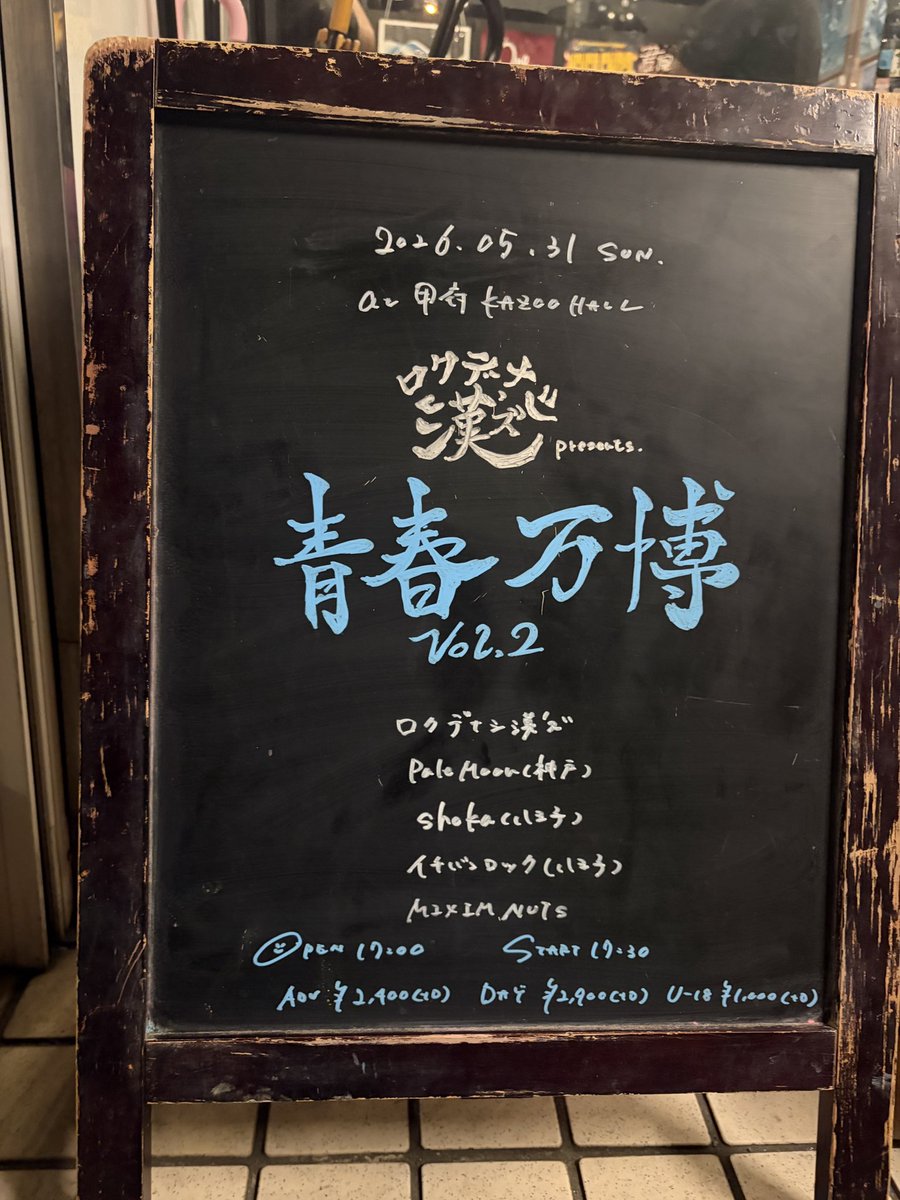 2026.05.31 SUN.
at 甲府 KAZOO HALL
ロクデナシ漢ズ presents.
青春万博
Vol.2
ロクデナシ漢ズ
Pale Moon(神戸)
shoka(八王子)
イチバンロック(八王子)
MIXIM NUTS
OPEN 17:00 START 17:30
ADV ¥2,400(+D) DAY ¥2,900(+D) U-18 ¥1,000(+D)